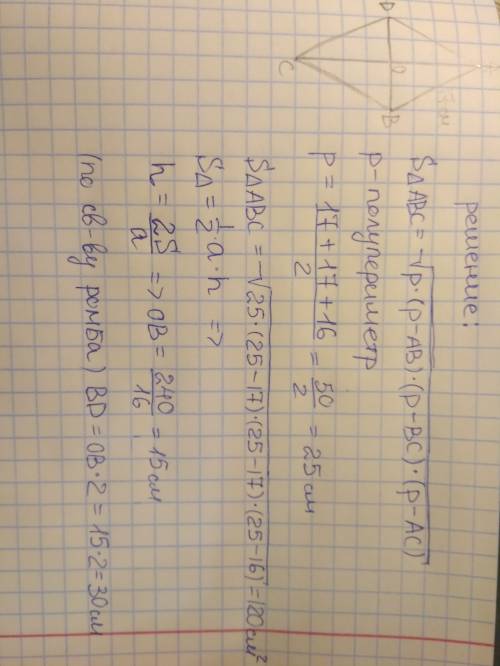 решение:
S∆ABC = √p·(p-AB)·(p-BC)·(p-AC)
p-полупериметр
p = 17+17+16/2 = 50/2 = 25 см
S∆ABC = √25·(25-17)·(25-17)·(25-16) = 120 см²
S∆ = 1/2 a·h =>
h = 2S/a => OB = 240/16 = 15 см
(по св-ву ромба) BD = OB·2 = 15·2 = 30 см
D
O
B
C